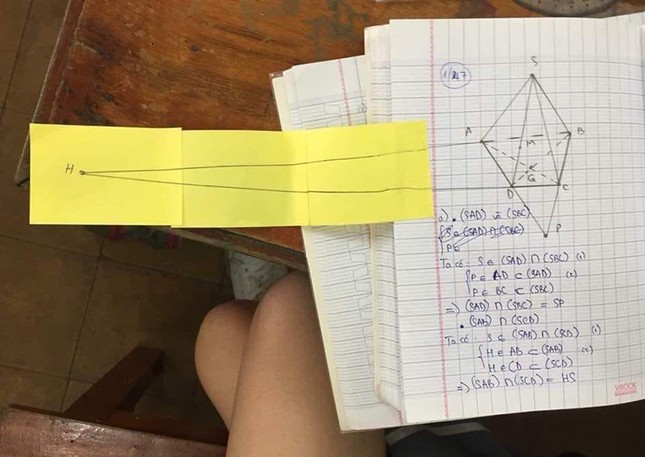 1/27
S
A
M
B
H
D
G
C
P
a) • (SAD) và (SBC)
S ∈ (SAD) ∩ (SBC)
P ∈
Ta có: S ∈ (SAD) ∩ (SBC) (1)
P ∈ AD ⊂ (SAD) (2)
P ∈ BC ⊂ (SBC)
=) (SAD) ∩ (SBC) = SP
• (SAB) ∩ (SCD)
Ta có: S ∈ (SAB) ∩ (SCD) (1)
H ∈ AB ⊂ (SAB) (2)
H ∈ CD ⊂ (SCD)
=) (SAB) ∩ (SCD) = HS